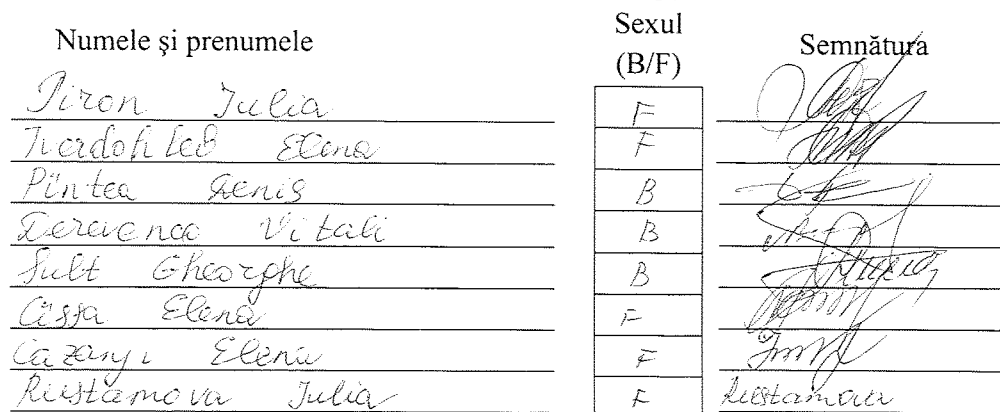 Numele şi prenumele Sexul (B/F) Semnătura
Piron Iulia F
Tverdohleb Elena F
Pîntea Denis B
Derevenco Vitali B
Sult Gheorghe B
Cissa Elena F
Elena F
Rustamova Iulia F Rustamova